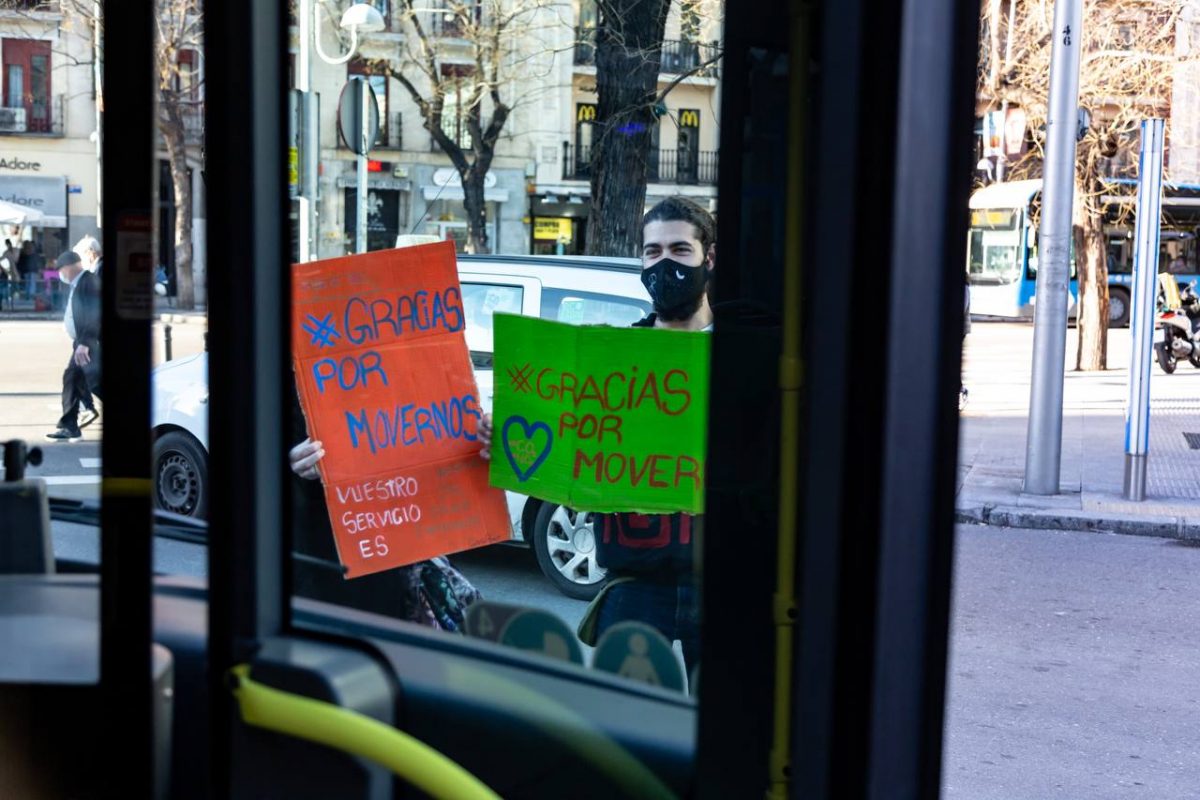 Adore
dore
#GRACIAS
POR
MOVERNOS
VUESTRO
SERVICIO
ES
#GRACIAS
POR
MOVER
COMPRO
46